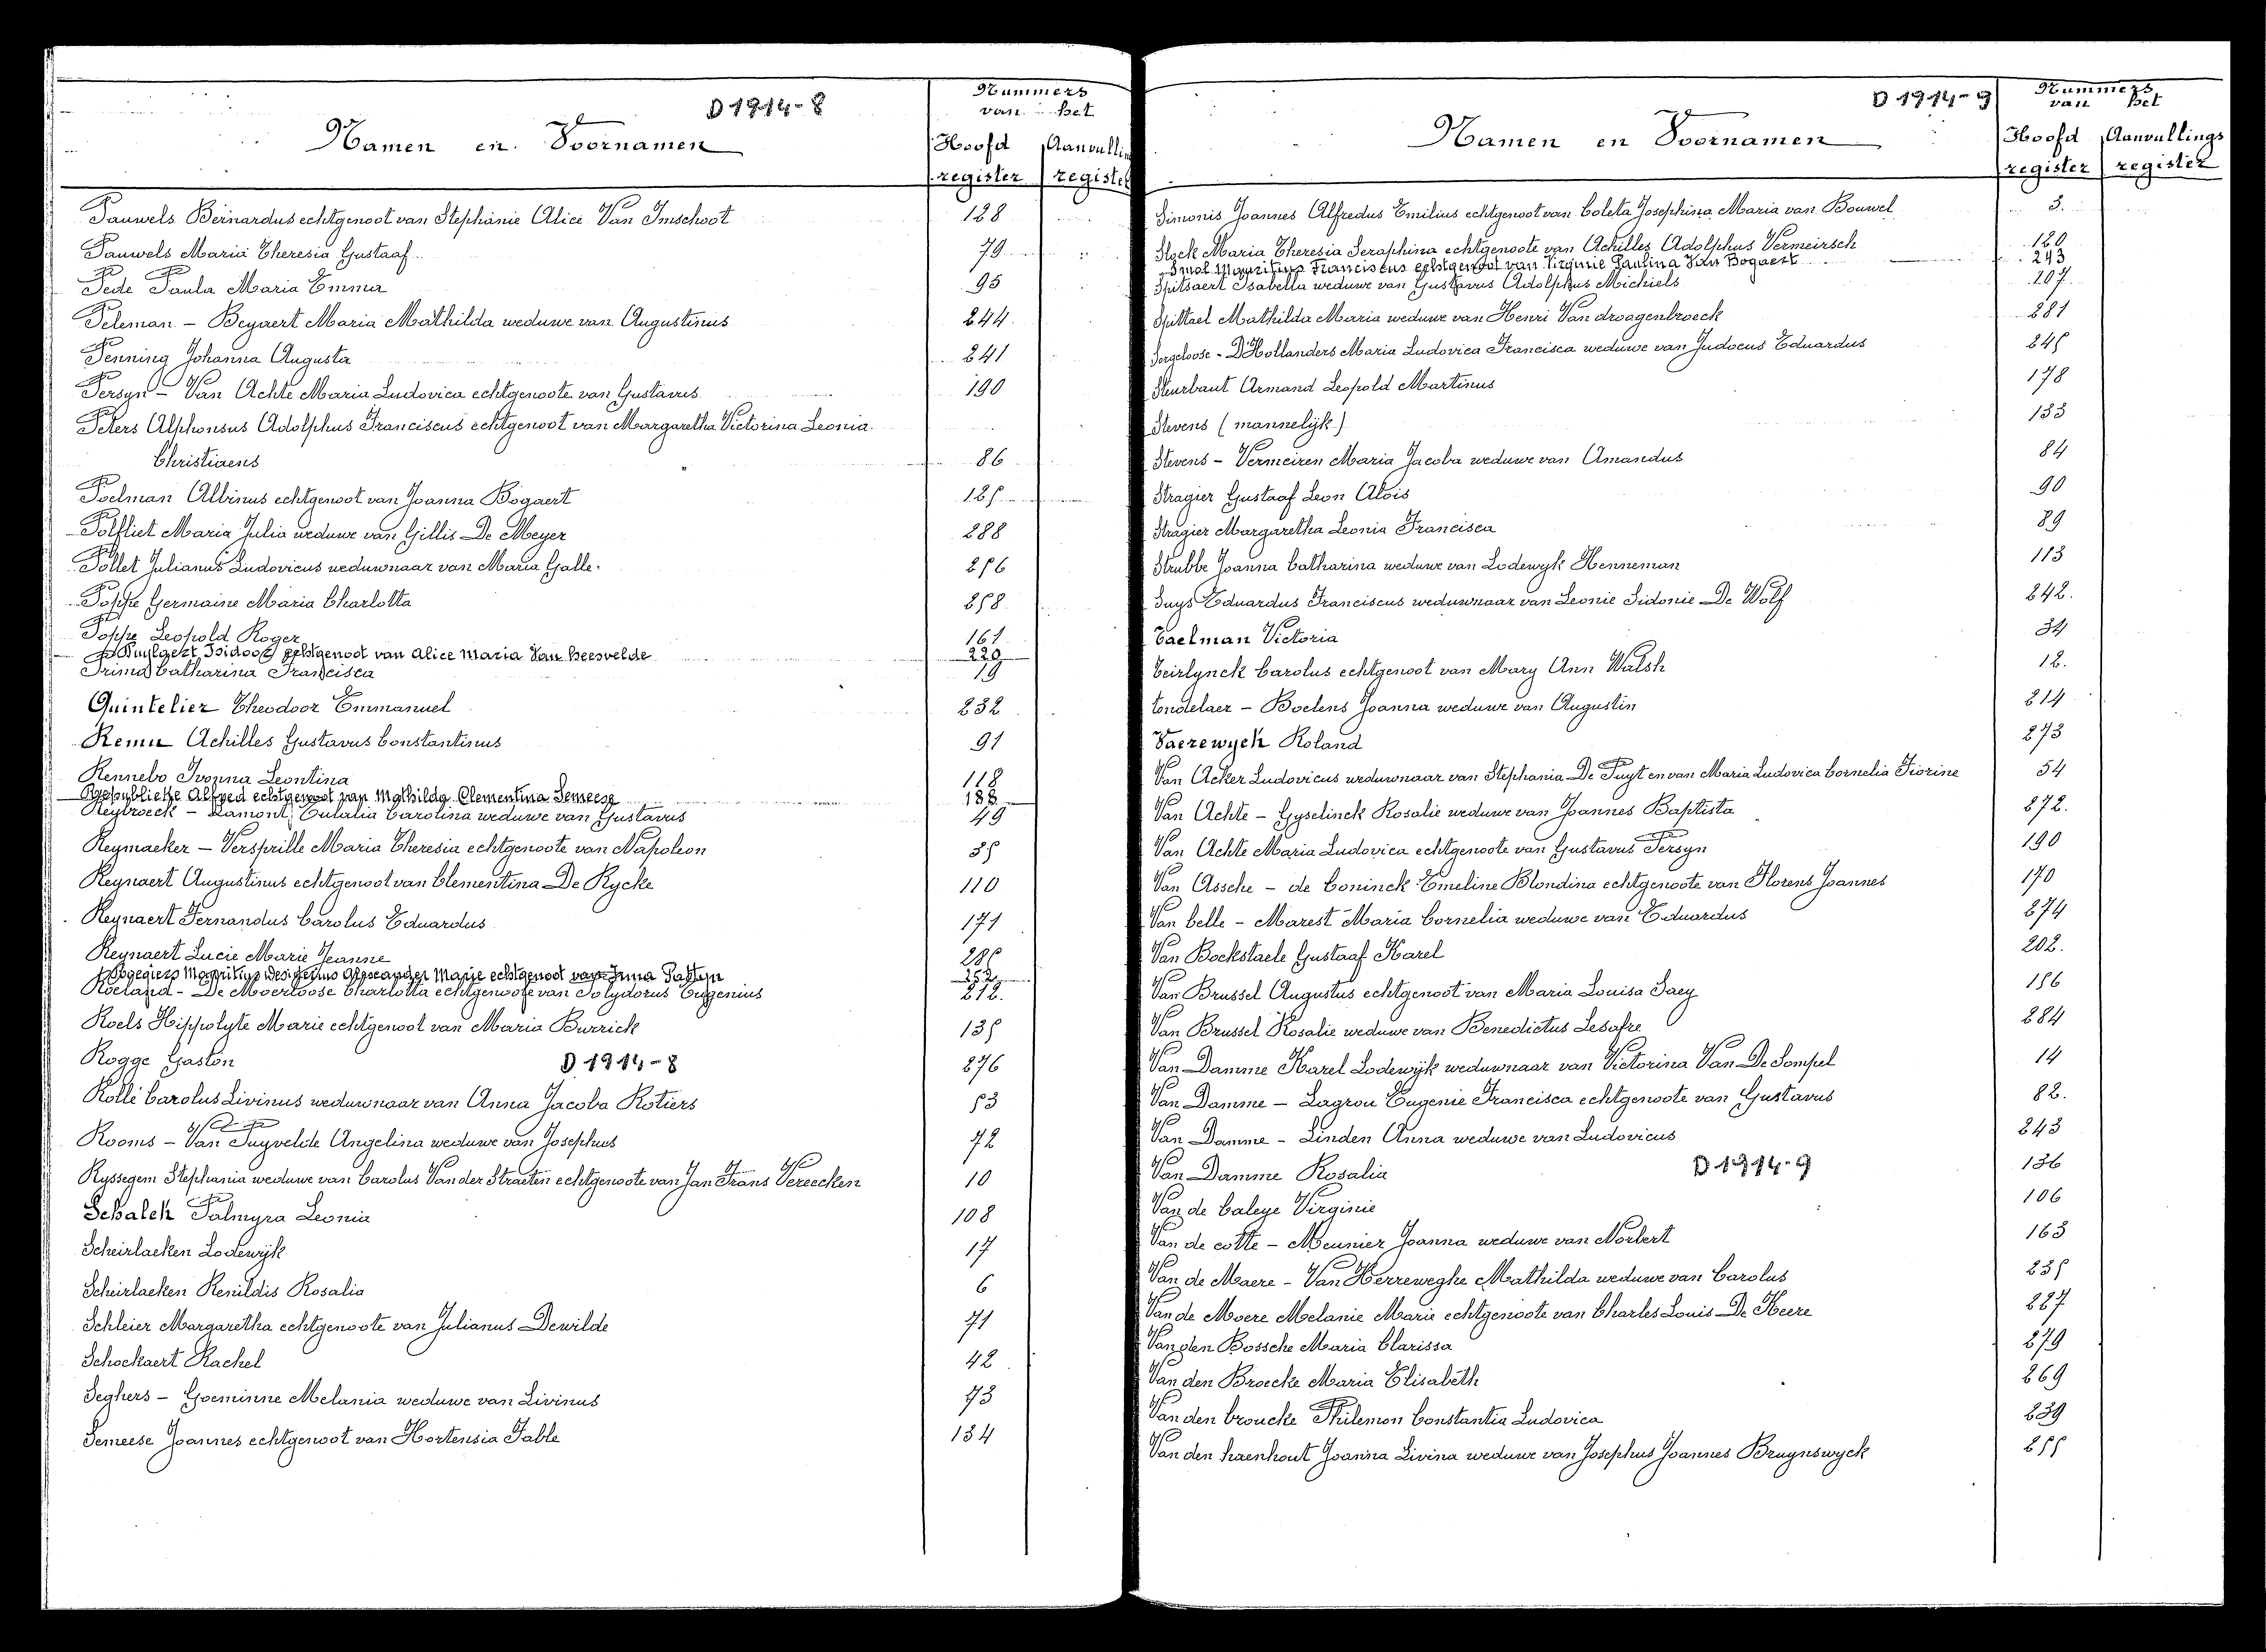 D 1914-8
Namen en Voornamen
Nummers
van het
Hoofd register
Aanvullin registe
Pauwels Bernardus echtgenoot van Stephanie Alice Van Imschoot 128
Pauwels Maria Theresia Gustaaf 79
Pede Paula Maria Emma 95
Peleman - Beyaert Maria Mathilda weduwe van Augustinus 244
Penning Johanna Augusta 241
Persyn - Van Achte Maria Ludovica echtgenoote van Gustavus 190
Peters Alphonsus Adolphus Franciscus echtgenoot van Margaretha Victorina Leonia
Christiaens 86
Poelman Albinus echtgenoot van Joanna Bogaert 125
Polfliet Maria Julia weduwe van Gillis De Meyer 288
Pollet Julianus Ludovicus weduwnaar van Maria Galle. 256
Poppe Germaine Maria Charlotta 258
Poppe Leopold Roger 161
Puylaert Isidoor echtgenoot van Alice Maria Van Heesvelde 220
Prims Catharina Francisca 19
Quintelier Theodoor Emmanuel 232
Remu Achilles Gustavus Constantinus 91
Rennebo Ivonna Leontina 118
Alfred echtgenoot van Mathilda Clementina Semeese 188
Reybroeck - Lamont Eulalia Carolina weduwe van Gustavus 49
Reymaeker - Versprille Maria Theresia echtgenoote van Napoleon 35
Reynaert Augustinus echtgenoot van Clementina De Rycke 110
Reynaert Fernandus Carolus Eduardus 171
Reynaert Lucie Marie Jeanne 285
Rogegiers Mauritius Desiderius Alexander Marie echtgenoot van Irma 252
Roeland - De Moerloose Charlotta echtgenoote van Polydorus Eugenius 212.
Roels Hippolyte Marie echtgenoot van Maria Burrick 135
Rogge Gaston D 1914-8 276
Rollé Carolus Livinus weduwnaar van Anna Jacoba Rotiers 53
Rooms - Van Puyvelde Angelina weduwe van Josephus 72
Ryssegem Stephania weduwe van Carolus Van der Straeten echtgenoote van Jan Frans Vereecken 10
Schalck Palmyra Leonia 108
Scheirlaeken Lodewijk 17
Scheirlaeken Renildis Rosalia 6
Schleier Margaretha echtgenoote van Julianus Dewilde 71
Schockaert Rachel 42
Seghers - Goeminne Melania weduwe van Livinus 73
Semeese Joannes echtgenoot van Hortensia Fable 134
D 1914-9
Namen en Voornamen
Nummers
van het
Hoofd register
Aanvullings register
Simonis Joannes Alfredus Emilius echtgenoot van Coleta Josephina Maria van Bouwel 3.
Slock Maria Theresia Seraphina echtgenoote van Achilles Adolphus Vermeirsch 120
Smal Mauritius Franciscus echtgenoot van Virginie Paulina Van Bogaert 243
Spitsaert Isabella weduwe van Gustavus Adolphus Michiels 207
Spittael Mathilda Maria weduwe van Henri Van droogenbroeck 281
Sorgeloose - D'Hollanders Maria Ludovica Francisca weduwe van Judocus Eduardus 245
Steurbaut Armand Leopold Martinus 178
Stevens (mannelijk) 133
Stevens - Vermeiren Maria Jacoba weduwe van Amandus 84
Stragier Gustaaf Leon Aloïs 90
Stragier Margaretha Leonia Francisca 89
Strubbe Joanna Catharina weduwe van Lodewyk Henneman 113
Suys Eduardus Franciscus weduwnaar van Leonie Sidonie De Wolf 242.
Taelman Victoria 34
Teirlynck Carolus echtgenoot van Mary Ann Walsh 12.
Tondelaer - Boelens Joanna weduwe van Augustin 214
Vaerewyck Roland 273
Van Acker Ludovicus weduwnaar van Stephania De Puyt en van Maria Ludovica Cornelia Fiorine 54
Van Achte - Gyselinck Rosalie weduwe van Joannes Baptista 272.
Van Achte Maria Ludovica echtgenoote van Gustavus Persyn 190
Van Assche - de Coninck Emeline Blondina echtgenoote van Florens Joannes 170
Van belle - Marest Maria Cornelia weduwe van Eduardus 274
Van Bockstaele Gustaaf Karel 202.
Van Brussel Augustus echtgenoot van Maria Louisa Saey 156
Van Brussel Rosalie weduwe van Benedictus Lesafre 284
Van Damme Karel Lodewijk weduwnaar van Victorina Van De Sompel 14
Van Damme - Lagrou Eugenie Francisca echtgenoote van Gustavus 82.
Van Damme - Linden Anna weduwe van Ludovicus 243
Van Damme Rosalia D 1914-9 136
Van de Caleye Virginie 106
Van de cotte - Meunier Joanna weduwe van Norbert 163
Van de Maere - Van Herreweghe Mathilda weduwe van Carolus 235
Van de Moere Melanie Marie echtgenoote van Charles Louis De Heere 227
Van den Bossche Maria Clarissa 279
Van den Broecke Maria Elisabeth 269
Van den broucke Philemon Constantia Ludovica 239
Van den haenhout Joanna Livina weduwe van Josephus Joannes Bruynswyck 255